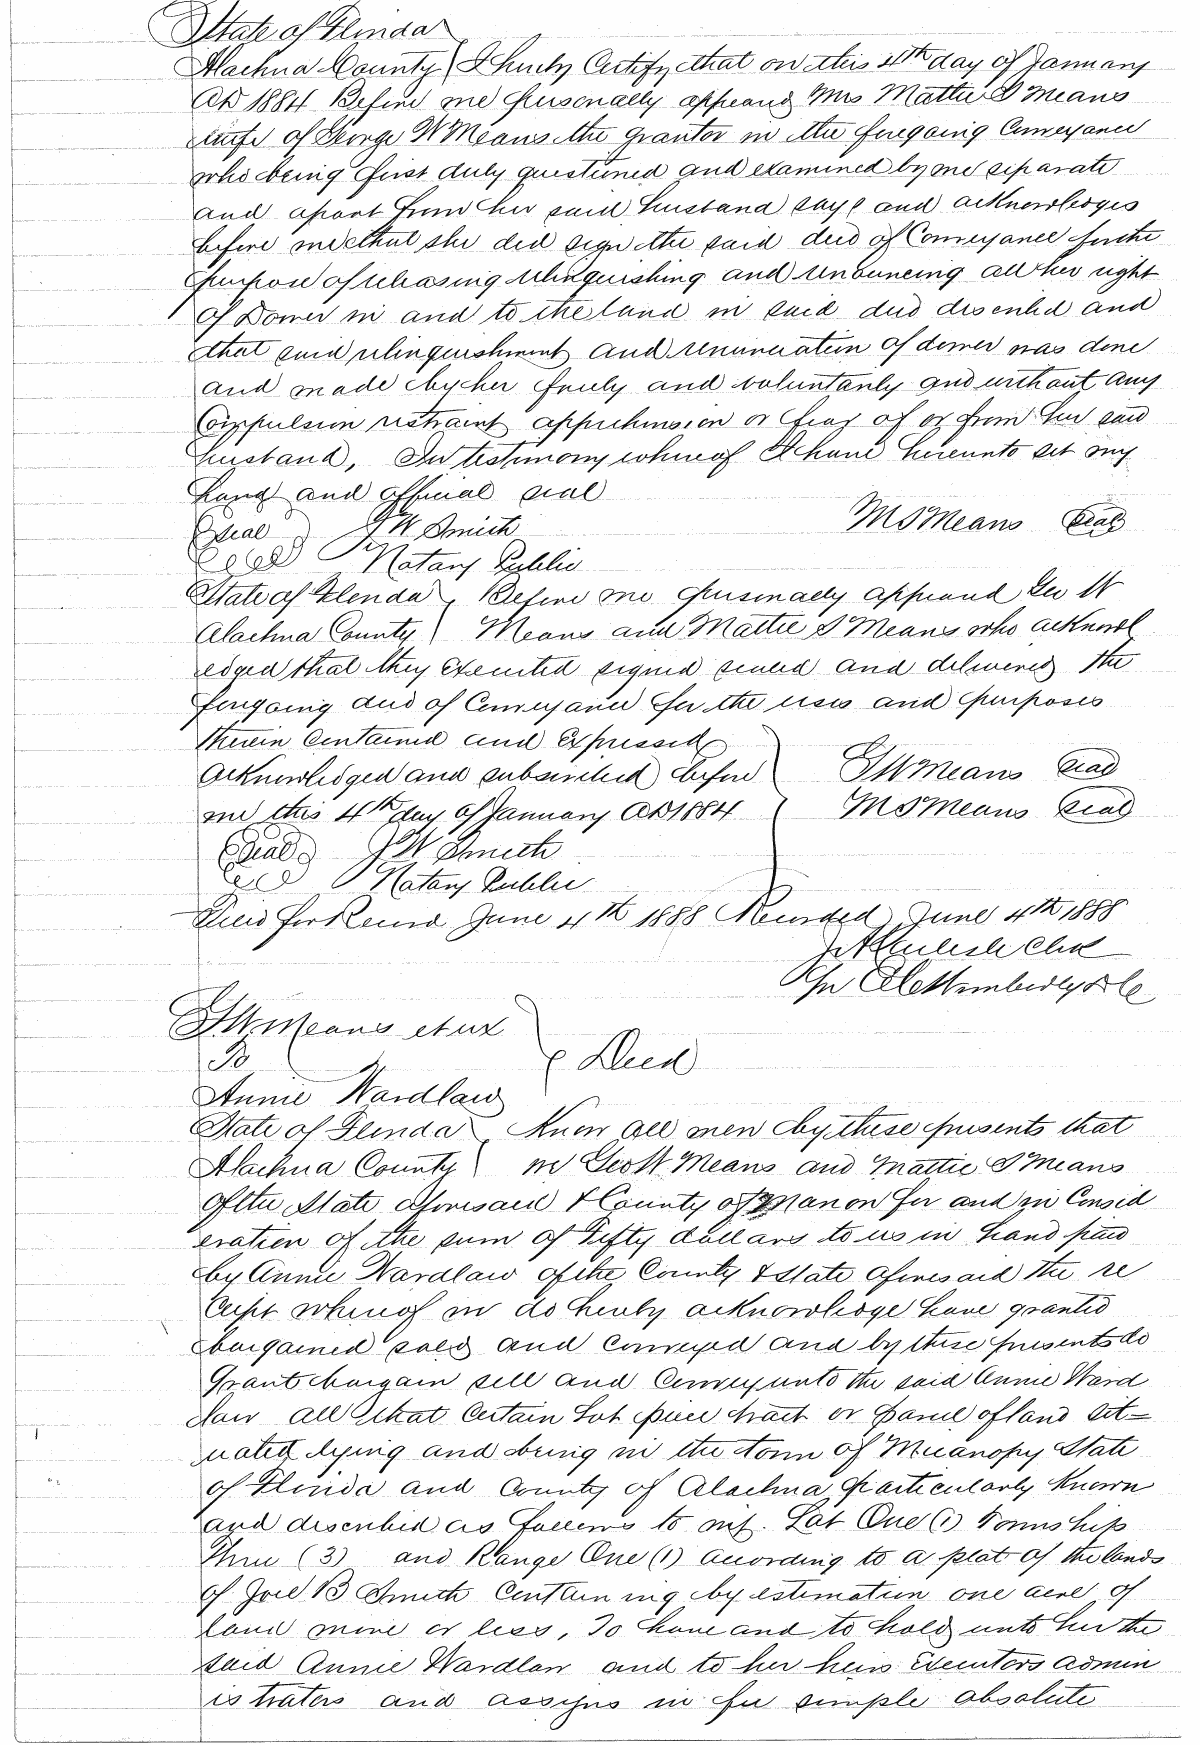 State of Florida
Alachua County I hereby Certify that on this 4th day of January
AD 1884 Before me personally appeared Mrs Mattie S Means
wife of George W Means the grantor in the foregoing Conveyance
who being first duly questioned and examined by me separate
and apart from her said husband says and acknowledges
before me that she did sign the said deed of Conveyance for the
purpose of releasing relinquishing and renouncing all her right
of Dower in and to the land in said deed described and
that said relinquishment and renunciation of dower was done
and made by her freely and voluntarily and without any
Compulsion restraint apprehension or fear of or from her said
husband, In testimony whereof I have hereunto set my
hand and official seal
M S Means Seal
Seal J W Smith
Notary Public
State of Florida Before me personally appeared Geo W
Alachua County Means and Mattie S Means who acknowl
edged that they executed signed sealed and delivered the
foregoing deed of Conveyance for the uses and purposes
therein contained and expressed
Acknowledged and subscribed before G W Means Seal
me this 4th day of January AD 1884 M S Means Seal
Seal J W Smith
Notary Public
Filed for Record June 4th 1888 Recorded June 4th 1888
Clerk
Pr
G W Means et ux
To Deed
Annie Wardlaw
State of Florida Know all men by these presents that
Alachua County we Geo W. Means and Mattie S Means
of the State aforesaid & County of Marion for and in Consid
eration of the sum of Fifty dollars to us in hand paid
by Annie Wardlaw of the County & State aforesaid the re
ceipt whereof we do hereby acknowledge have granted
bargained sold and conveyed and by these presents do
Grant bargain sell and Convey unto the said Annie Ward
law all that Certain Lot piece tract or parcel of land sit=
uated lying and being in the town of Micanopy State
of Florida and County of Alachua particularly known
and described as follows to wit. Lot One (1) Township
Three (3) and Range One (1) according to a plat of the lands
of Joel B Smith Containing by estimation one acre of
land more or less, To have and to hold unto her the
said Annie Wardlaw and to her heirs Executors admin
istrators and assigns in fee simple absolute